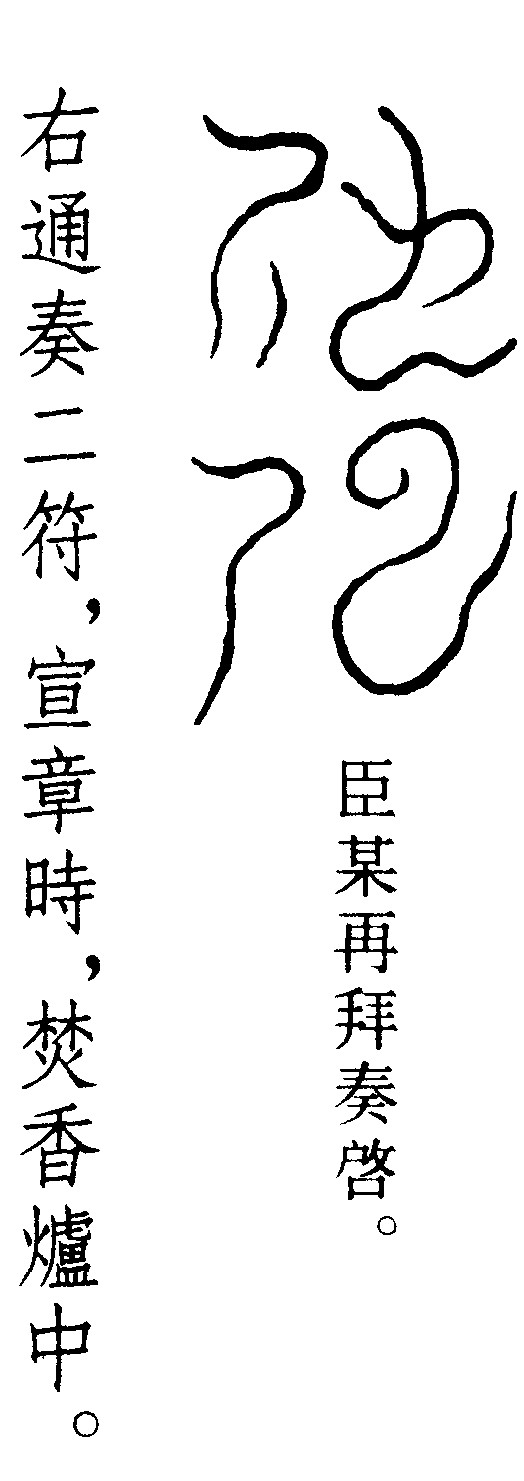 臣某再拜奏啓。
右通奏二符，宣章時，焚香爐中。